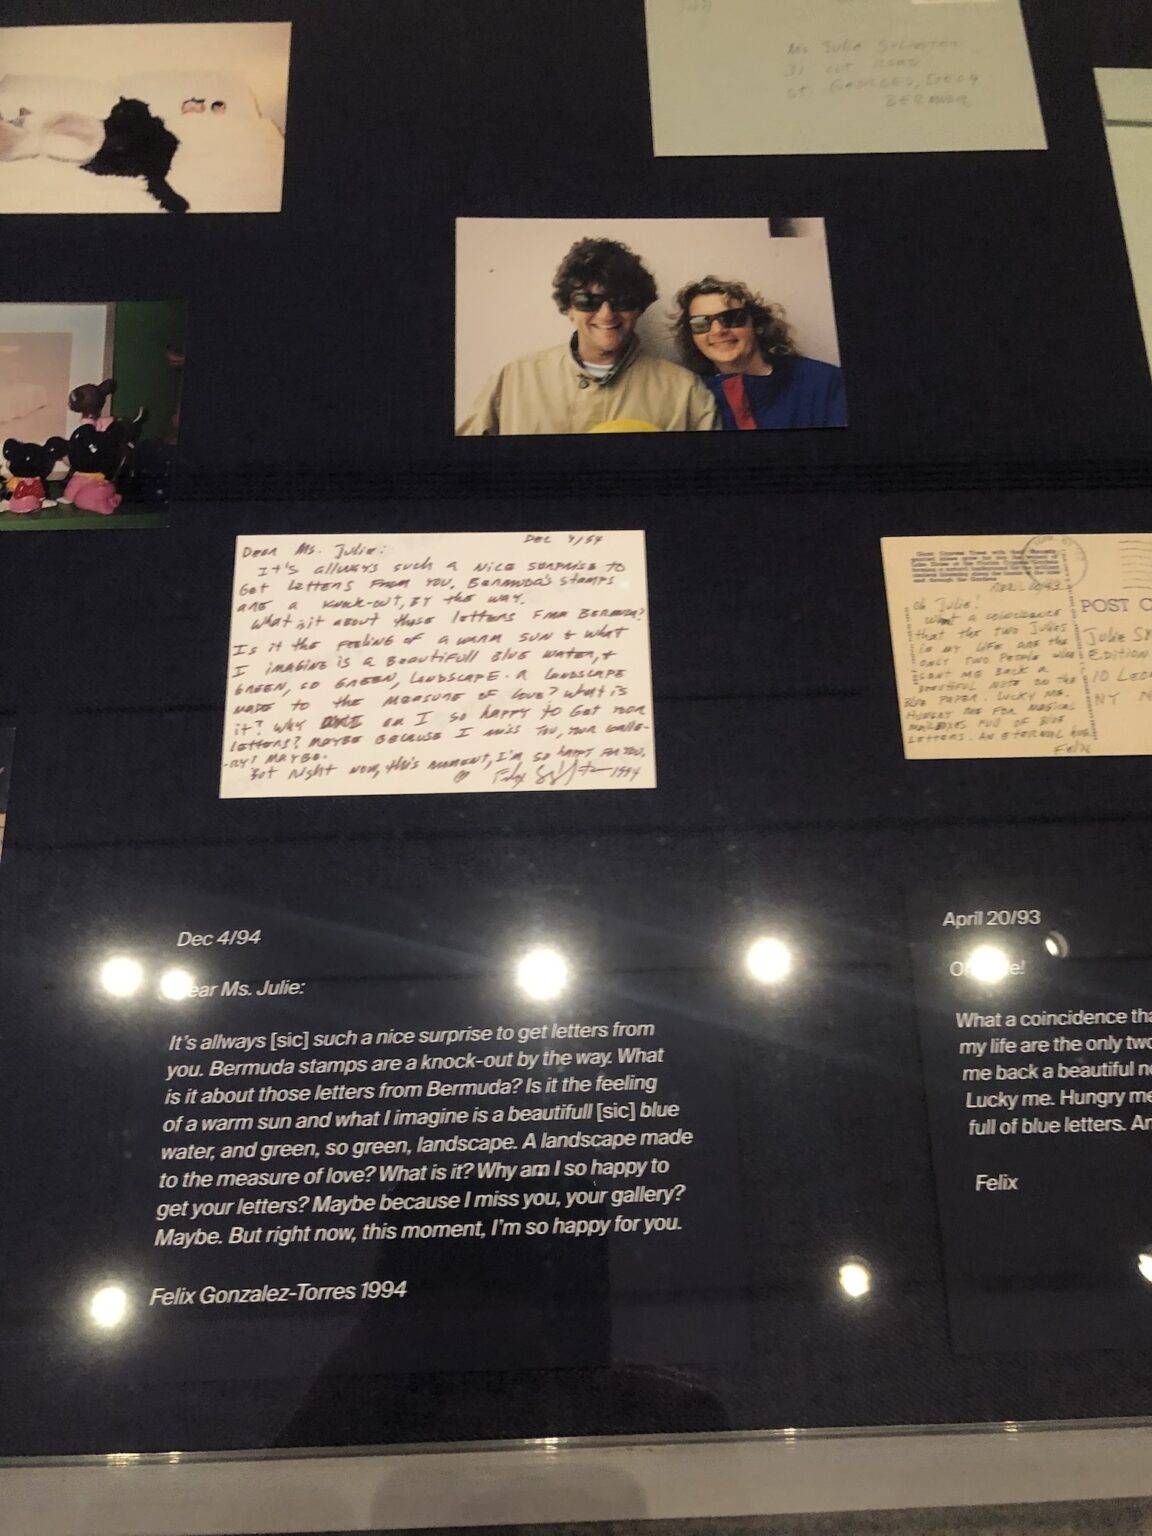 Ms Julie Sylvester
31 Cut Road
St. Georges,
Bermuda
Dec 4/94
Dear Ms. Julie:
It's allways such a nice surprise to
get letters from you. Bermuda's stamps
are a knock-out, by the way.
What is it about those letters from Bermuda?
Is it the feeling of a warm sun + what
I imagine is a beautifull blue water, +
green, so green, landscape. A landscape
made to the measure of love? What is
it? Why am I so happy to get your
letters? Maybe because I miss you, your galle-
-ry? Maybe.
But right now, this moment, I'm so happy for you.
1994
April 20/93
Oh Julie!
What a coincidence
that the two Julies
in my life are the
only two people who
sent me back a
beautiful note on the
blue paper. Lucky me.
Hungry me for magical
mailboxes full of blue
letters. An eternal hug.
Felix
POST C
Julie Sy
Edition
10 Leo
NY N
Dec 4/94
ear Ms. Julie:
It's allways [sic] such a nice surprise to get letters from
you. Bermuda stamps are a knock-out by the way. What
is it about those letters from Bermuda? Is it the feeling
of a warm sun and what I imagine is a beautifull [sic] blue
water, and green, so green, landscape. A landscape made
to the measure of love? What is it? Why am I so happy to
get your letters? Maybe because I miss you, your gallery?
Maybe. But right now, this moment, I'm so happy for you.
Felix Gonzalez-Torres 1994
April 20/93
What a coincidence tha
my life are the only two
me back a beautiful no
Lucky me. Hungry me
full of blue letters. An
Felix